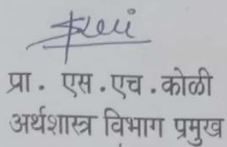 प्रा. एस.एच.कोळी
अर्थशास्त्र विभाग प्रमुख